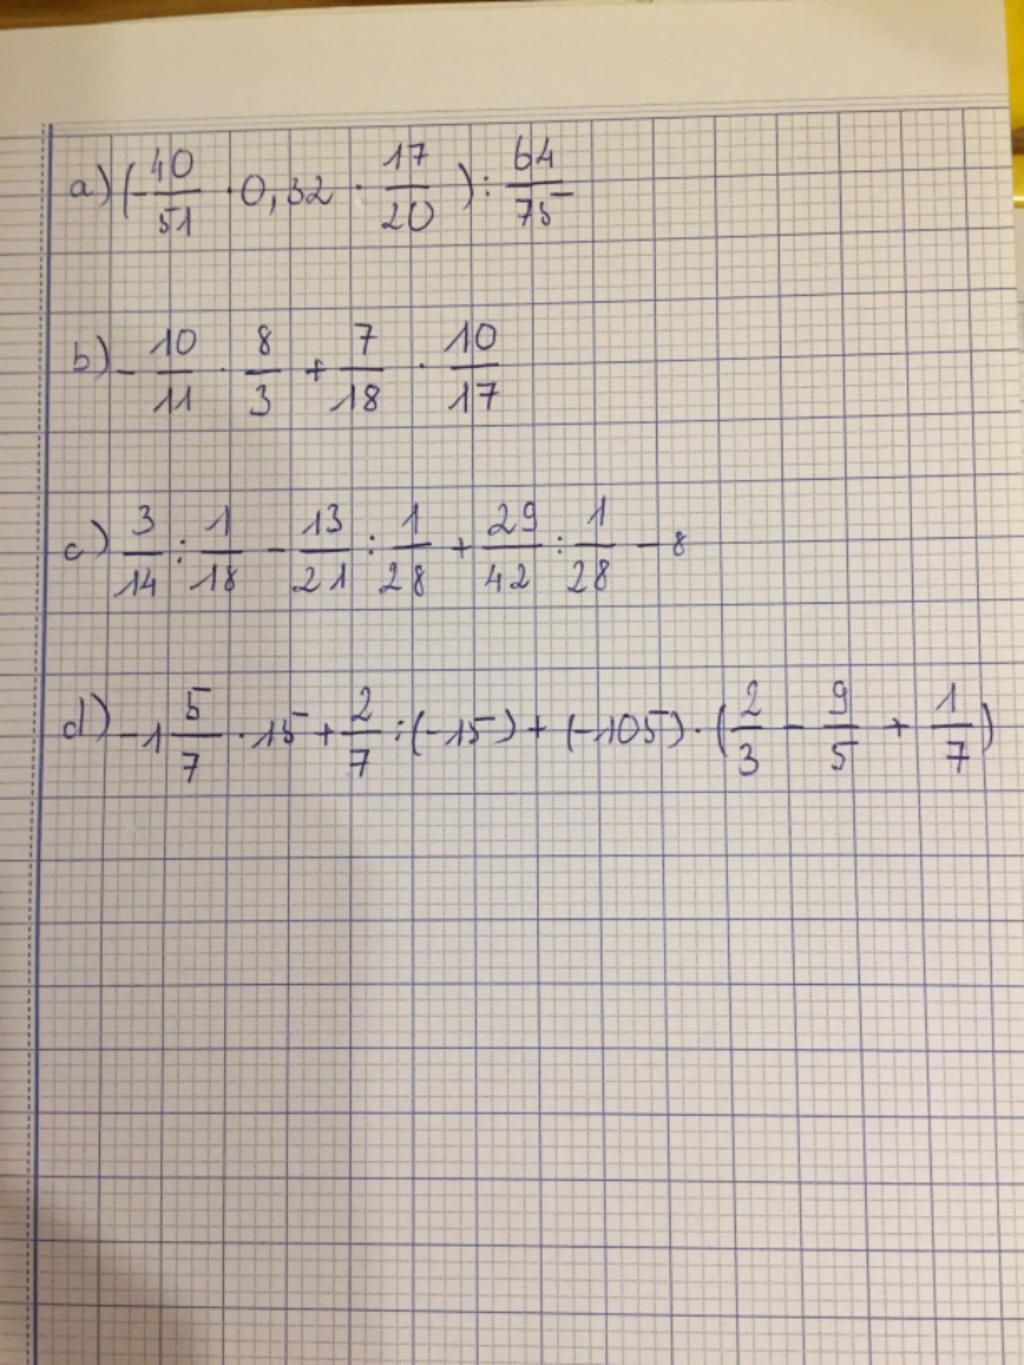 a) (-40/51 · 0,32 · 17/20) : 64/75
b) - 10/11 · 8/3 + 7/18 · 10/17
c) 3/14 : 1/18 - 13/21 : 1/28 + 29/42 : 1/28 - 8
d) -1 5/7 · 15 + 2/7 : (-15) + (-105) · (2/3 - 9/5 + 1/7)